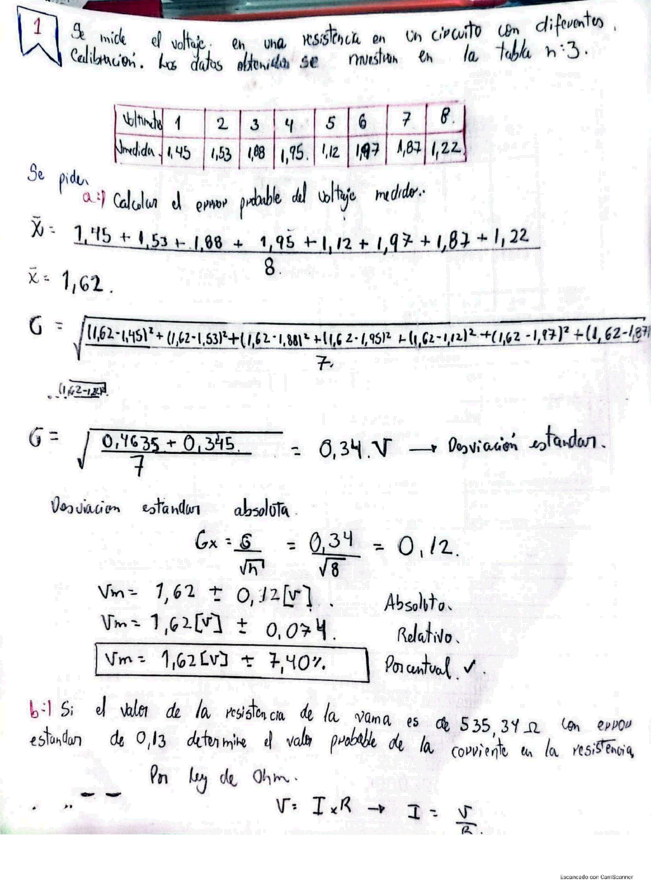 1
Se mide el voltaje. en una resistencia en un circuito con diferentes.
Calibración. Los datos obtenidos se muestran en la tabla n:3.
Voltimetro 1 2 3 4 5 6 7 8.
Vmedida. 1,45 1,53 1,88 1,95. 1,12 1,97 1,87 1,22
Se piden
a:) Calcular el error probable del voltaje medido..
X̄ = 1,45 + 1,53 + 1,88 + 1,95 + 1,12 + 1,97 + 1,87 + 1,22
8.
x̄ = 1,62.
G = √ (1,62-1,45)² + (1,62-1,53)² + (1,62-1,88)² + (1,62-1,95)² + (1,62-1,12)² + (1,62-1,97)² + (1,62-1,87)
7.
G = √ 0,4635 + 0,345. = 0,34.V → Desviación estandar.
7
Desviacion estandar absoluta.
Gx = G = 0,34 = 0,12.
√n √8
Vm = 1,62 ± 0,12[v]. Absoluto.
Vm = 1,62[v] ± 0,074. Relativo.
Vm = 1,62[v] ± 7,40%. Porcentual. ✓.
b:) Si el valor de la resistencia de la rama es de 535,34 Ω con error
estandar de 0,13 determine el valor probable de la corriente en la resistencia,
Por ley de Ohm.
V = I x R → I = V
R.
Escaneado con CamScanner